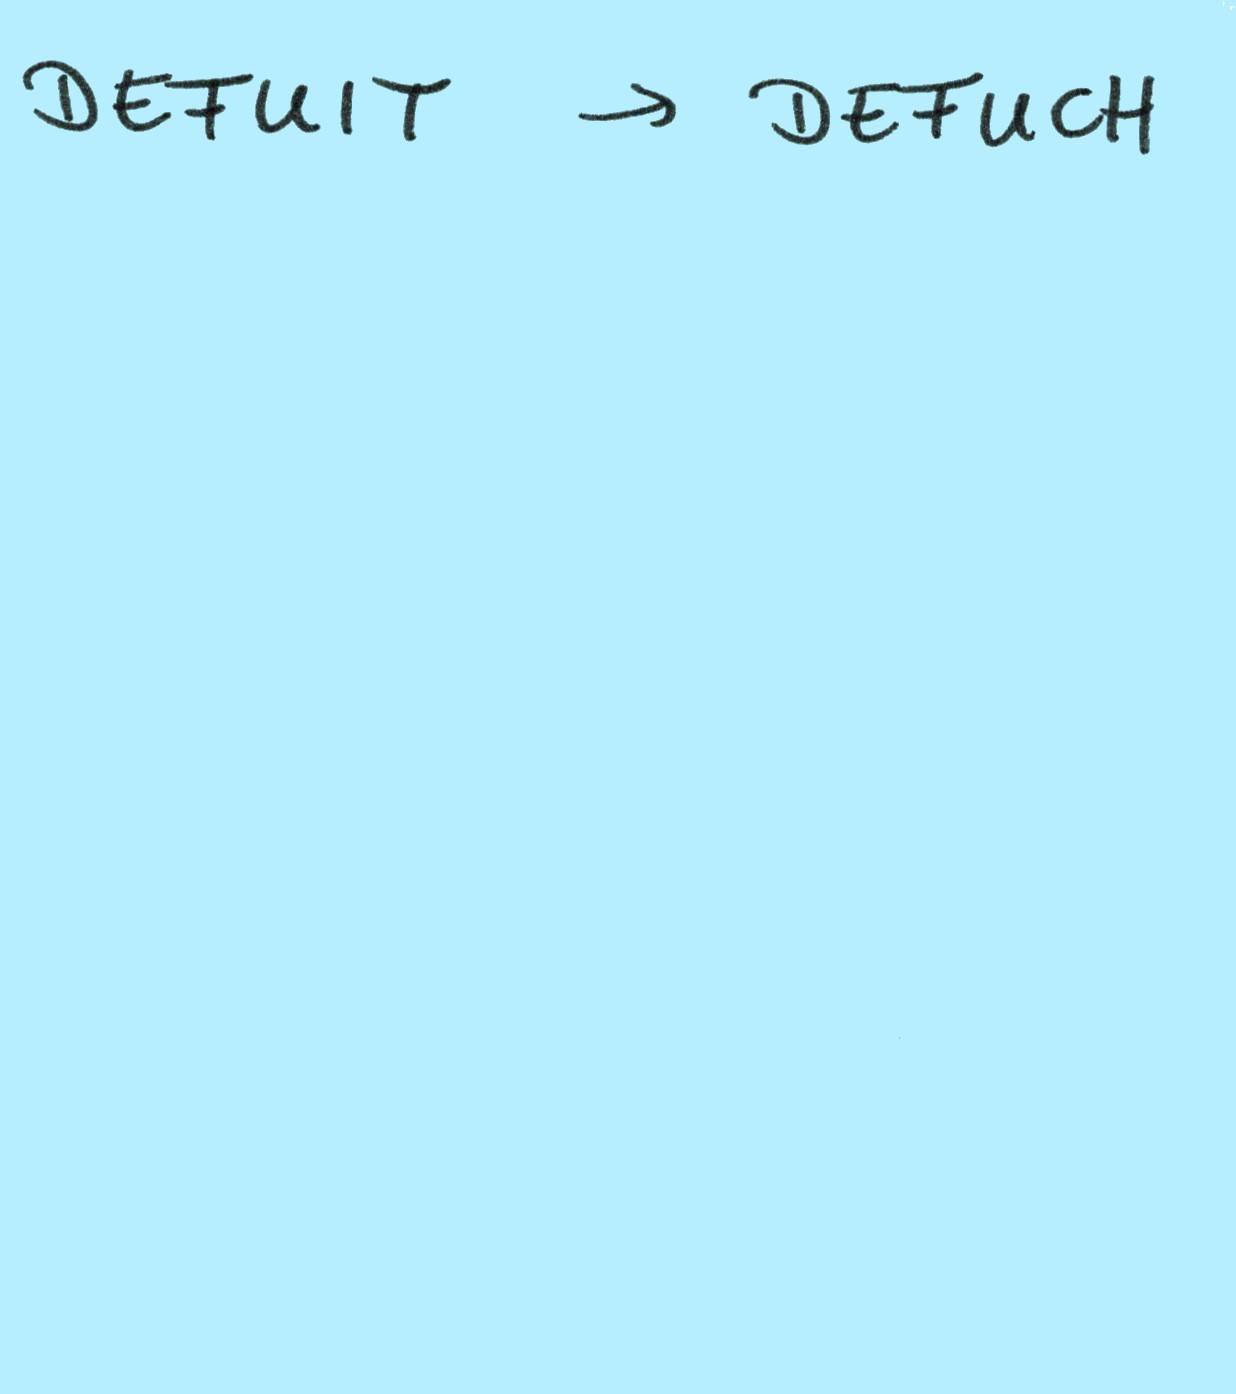 DEFUIT → DEFUCH